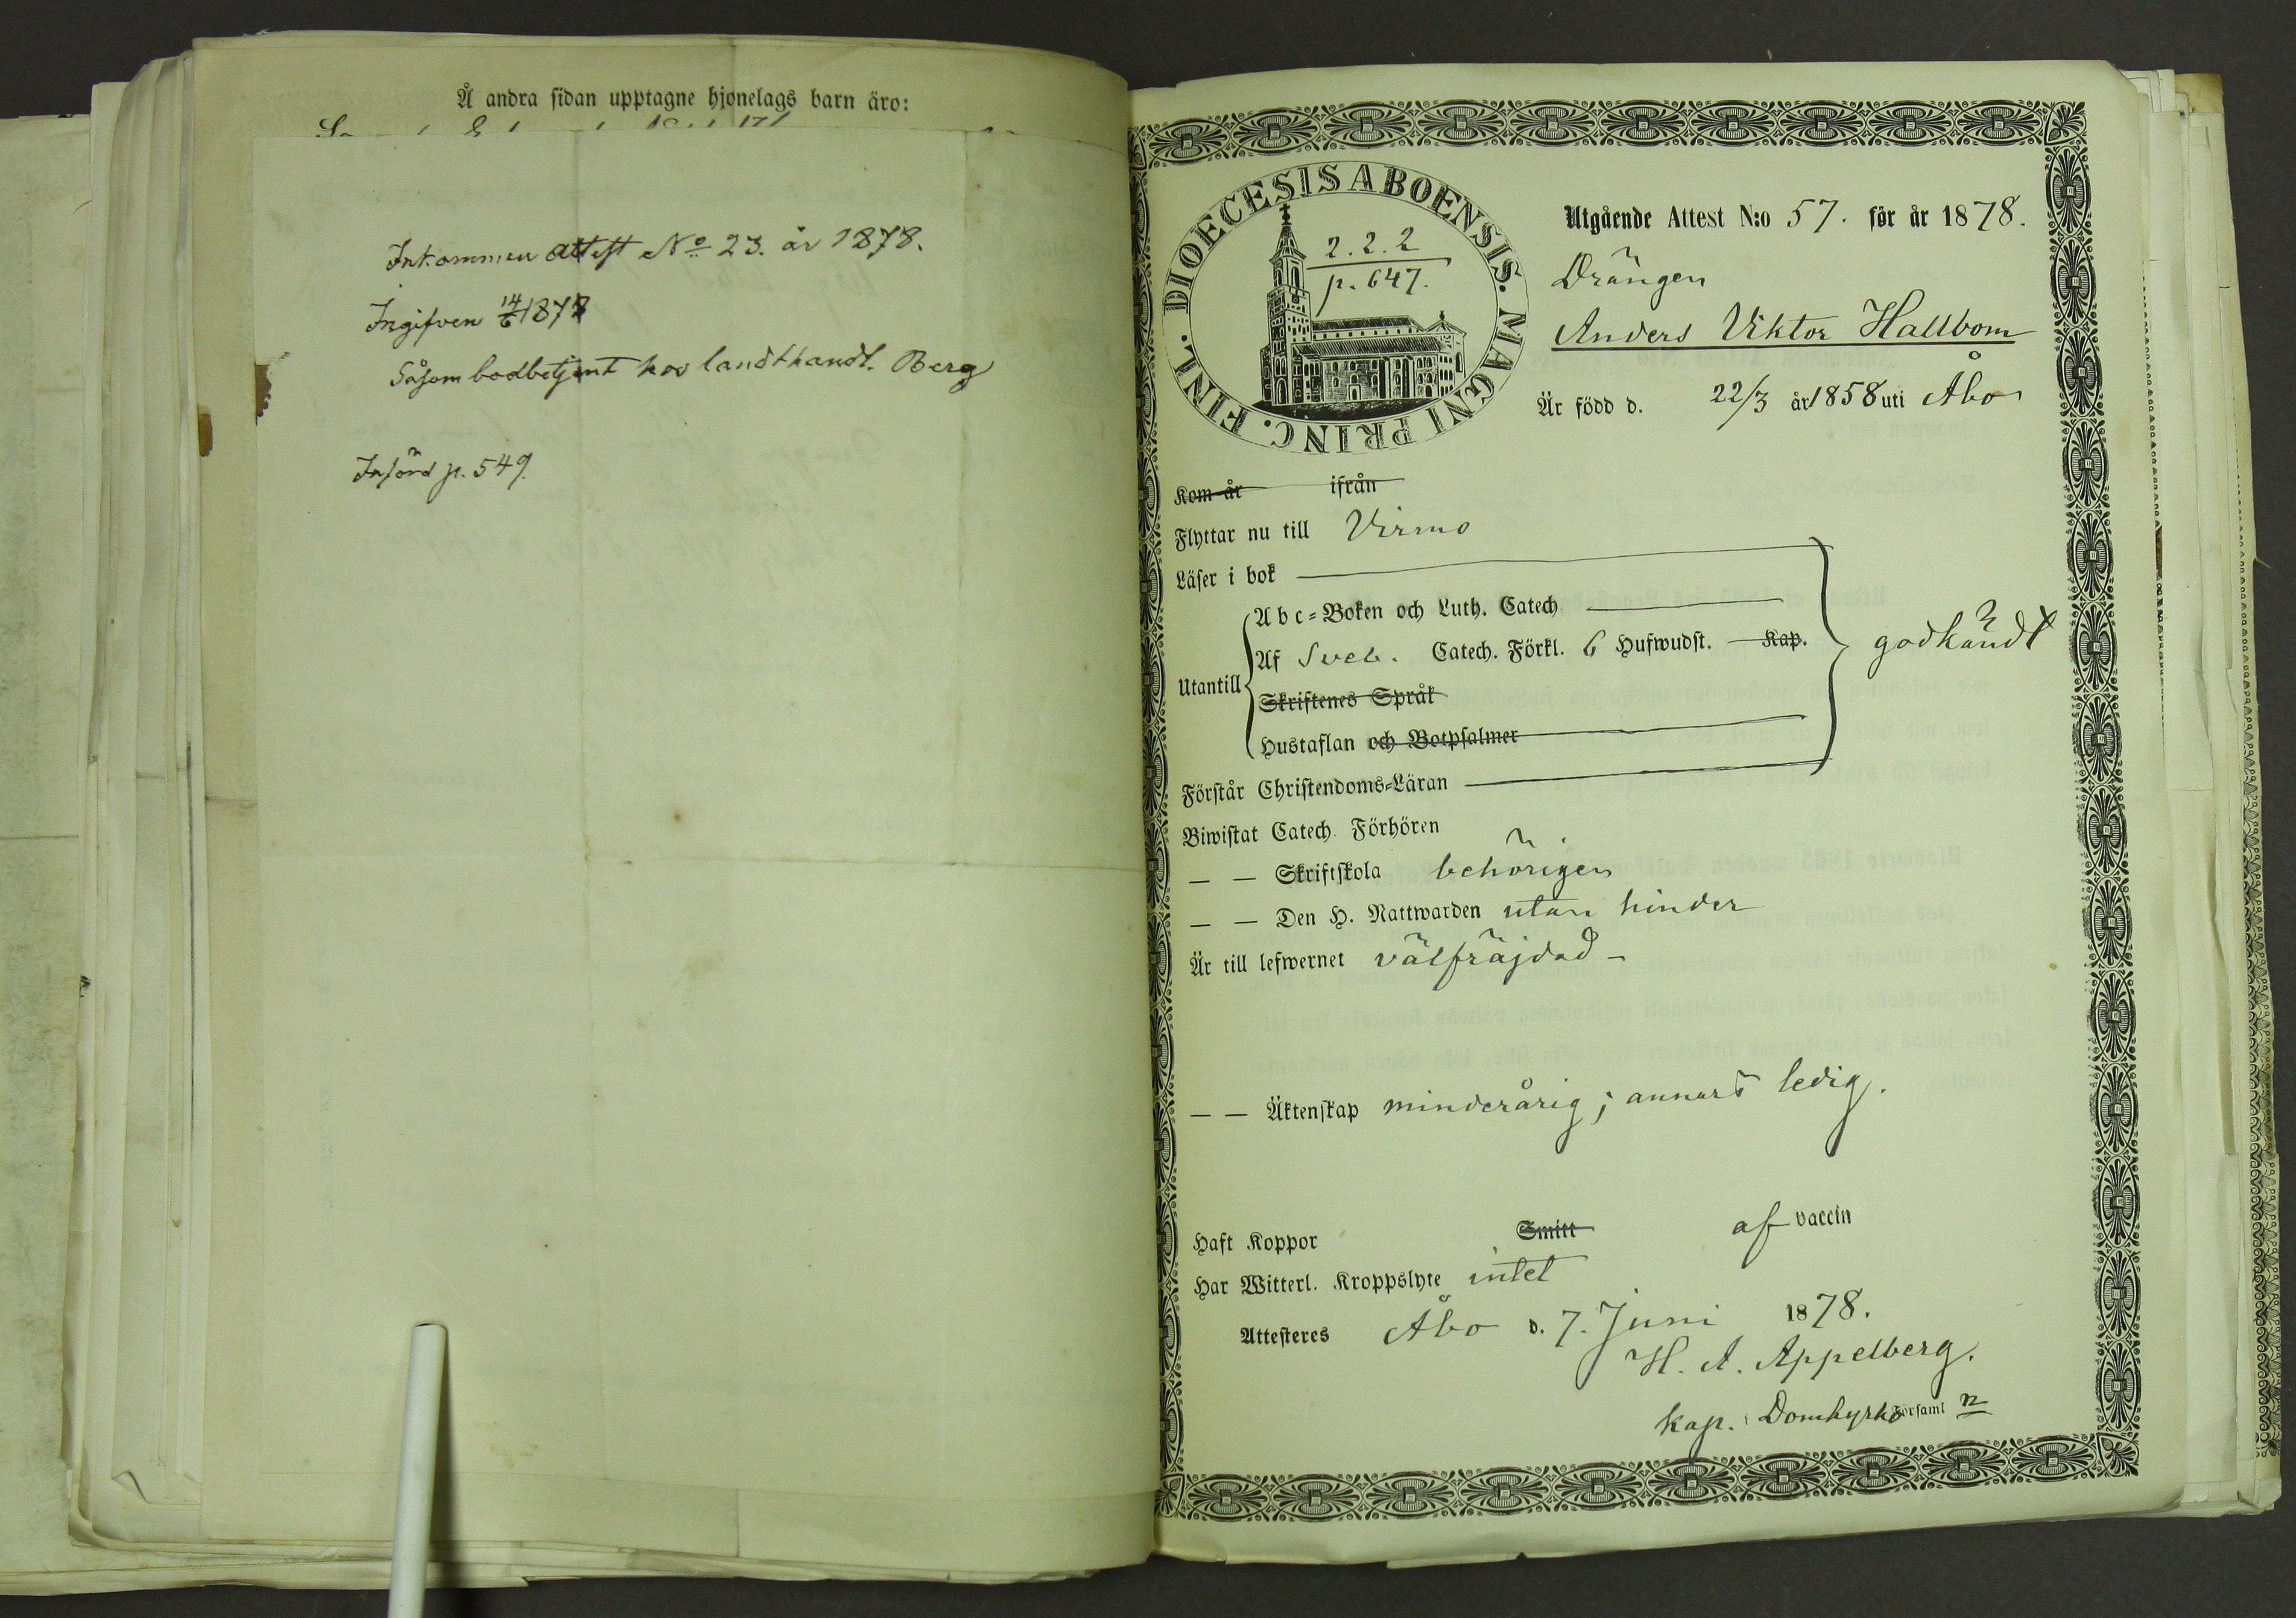 Å andra sidan upptagne hjonelags barn äro:
Inkommen attest No 23. år 1878.
Ingifven 14/6 1878
Såsom bodbetjent hos landthandl. Berg
Införd p. 549.
DIOECESIS ABOENSIS. MAGNI PRINC. FINL.
2.2.2
p. 647.
Utgående Attest N:o 57. för år 1878.
Drängen
Anders Viktor Hallbom
Är född d. 22/3 år 1858 uti Åbo
Kom år ifrån
Flyttar nu till Virmo
Läser i bok
Abc-Boken och Luth. Catech
Utantill Af Sveb. Catech. Förkl. 6 Hufwudst. Kap. godkändt
Skriftenes Språk
Hustaflan och Botpsalmer
Förstår Christendoms-Läran
Biwistat Catech. Förhören
— — Skriftskola behörigen
— — Den H. Nattwarden utan hinder
Är till lefwernet välfräjdad -
— — Äktenskap minderårig; annars ledig.
Haft Koppor Smitt af vaccin
Har Witterl. Kroppslyte intet
Attesteres Åbo d. 7. Juni 1878.
H. A. Appelberg.
Kap. i Domkyrko Församl n